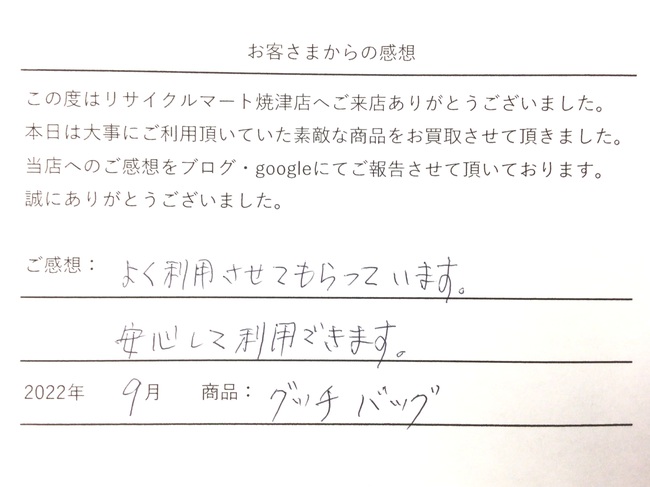 お客さまからの感想
この度はリサイクルマート焼津店へご来店ありがとうございました。
本日は大事にご利用頂いていた素敵な商品をお買取させて頂きました。
当店へのご感想をブログ・googleにてご報告させて頂いております。
誠にありがとうございました。
ご感想： よく利用させてもらっています。
安心して利用できます。
2022年 9月 商品： グッチ バッグ